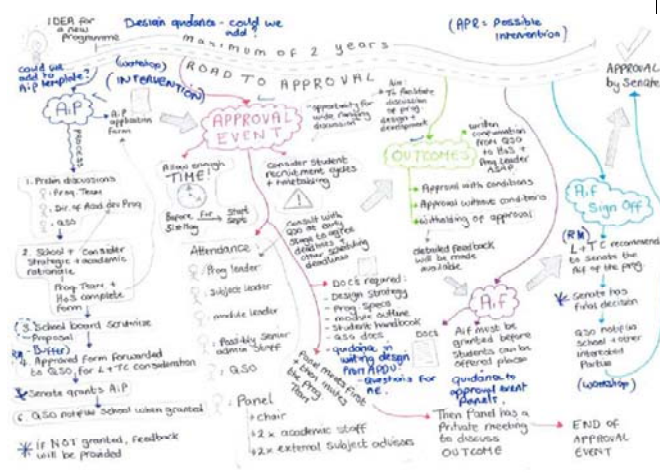 IDEA for
a new
Programme
Design guidance - could we
add?
(APR = Possible
intervention)
maximum of 2 years
ROAD TO APPROVAL
could we
add to
AiP template?
(workshop)
(INTERVENTION)
AiP
AiP
application
form
PROCESS
1. Prelim discussions
Prog. Team
Dir of Acad. dev Prog
QSO
2. School + Consider
Strategic + academic
rationale
Prog Team +
HoS complete
form
(3. School board Scrutinise
Proposal
4. Approved form forwarded
to QSO, for L+TC consideration
Senate grants AiP
6. QSO notifies School when granted
* if NOT granted, feedback
will be provided
APPROVAL
EVENT
opportunity for
wide ranging
discussion
Aim
To facilitate
discussion of
prog design +
development
Allow enough
TIME!
Before
for
Start
Sept
Consider Student
recruitment cycles
+ timetabling
Consult with
QSO at early
stage to agree
deadlines +
other scheduling
deadlines
Attendance
Prog leader
Subject leader
module leader
Possibly Senior
admin Staff
QSO
Panel
chair
+2x academic staff
+2x external Subject advisors
DOCS required:
- Design strategy
- Prog Specs
- module outline
- Student handbook
- QSO docs
guidance in
writing design
from APDU
questions for
AE.
Panel meets first
then invites
the Prog
Team
OUTCOMES
written
confirmation
from QSO
to HoS +
Prog Leader
ASAP
Approval with conditions
Approval without conditions
withholding of approval
detailed feedback
will be made
available
AiF
AiF must be
granted before
Students can be
offered places
DOCS
guidance to
approval event
Panels.
Then Panel has a
Private meeting
to discuss
OUTCOME
END OF
APPROVAL
EVENT
APPROVAL
by Senate
AiF
Sign Off
(RM)
L+TC recommend
to Senate the
AiF of the prog
* Senate has
final decision
QSO notifies
school + other
interested
Parties
(workshop)